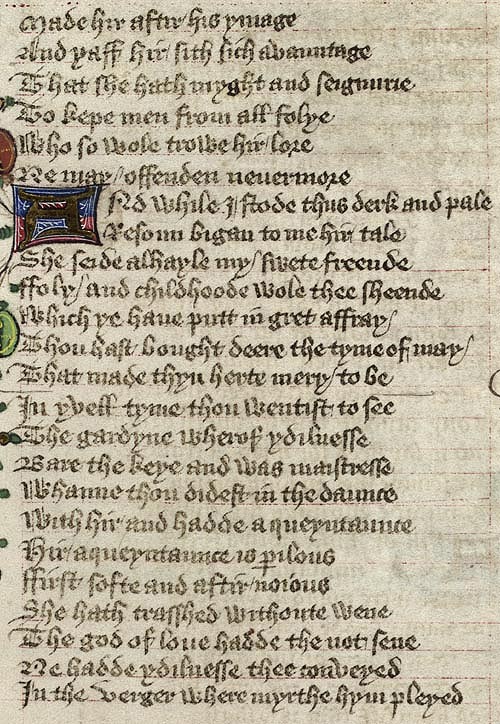 Made hir aftir his ymage
And yaff hir sith sich avauntage
That she hath myght and seignurie
To kepe men from all folye
Who so wole trowe hir lore
Ne may / offenden nevermore
And while I stode thus derk and pale
Resoun bigan to me hir tale
She seide al hayle my / swete freende
ffoly / and childhoode wole thee sheende
Which ye have putt in gret affray /
Thou hast bought deere the tyme of may /
That made thyn herte mery / to be
In yvell tyme thou wentist to see
The gardyne wherof ydilnesse
Bare the keye and was maistresse
Whanne thou didest in the daunce
With hir and hadde aqueyntaunce
Hir aqueyntaunce is pilous
ffirst softe and aftir noious
She hath trasshed withoute wene
The god of love hadde the not sene
Ne hadde ydilnesse thee conveyed
In the verger where myrthe hym pleyed